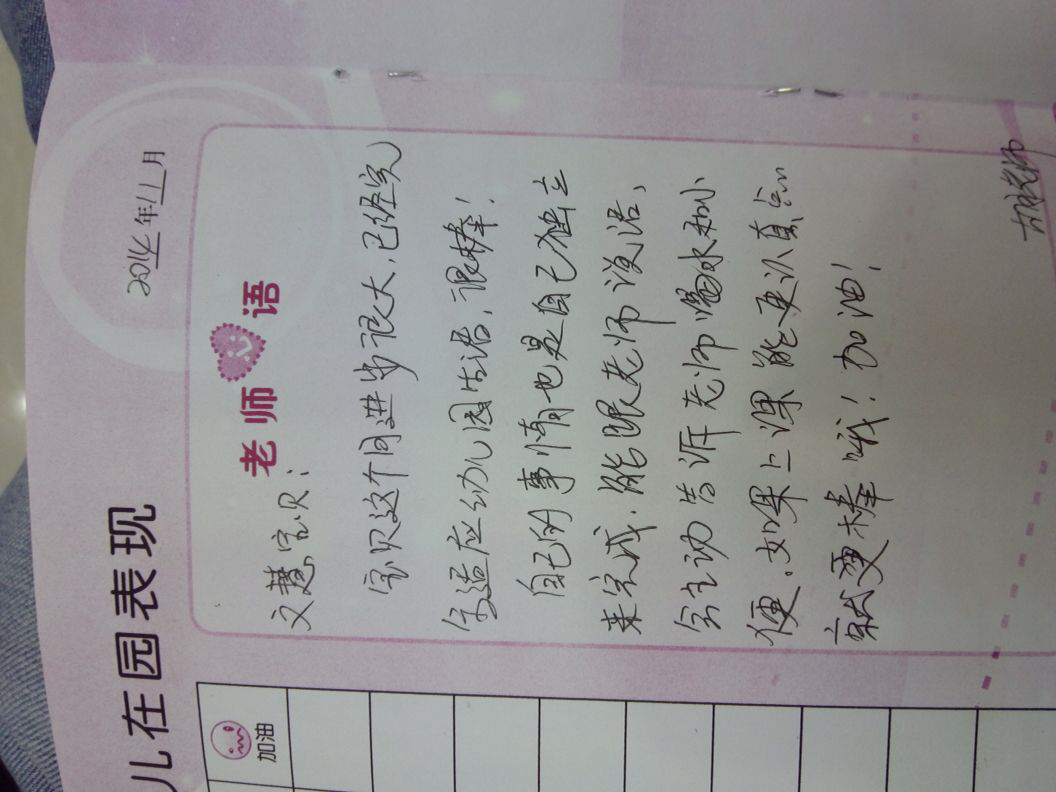 儿在园表现
2014年11月
老师语
文慧宝贝：
宝贝这个月进步很大，已经完
全适应幼儿园生活，很棒！
自己的事情也是自己独立
来完成，能跟老师说话，
会主动告诉老师喝水和小
便。如果上课能更认真点
就更棒哦！加油！
老师
加油